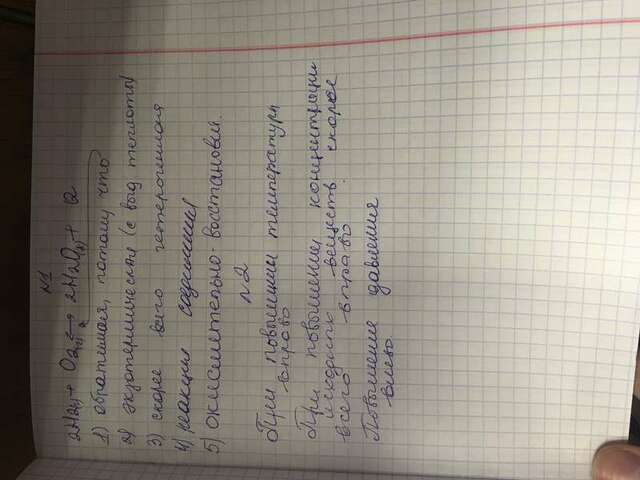 №1
2H2(г)+ O2(г) ⟷ 2H2O(ж)+ Q
1) обратимая, потому что
2) экзотермическая (с выд теплоты)
3) скорее всего гетерогенная
4) реакция соединения
5) окислительно-восстановит.
№2
При повышении температуры
вправо
При повышении концентрации
исходных веществ скорее
всего вправо.
Повышение давления
влево